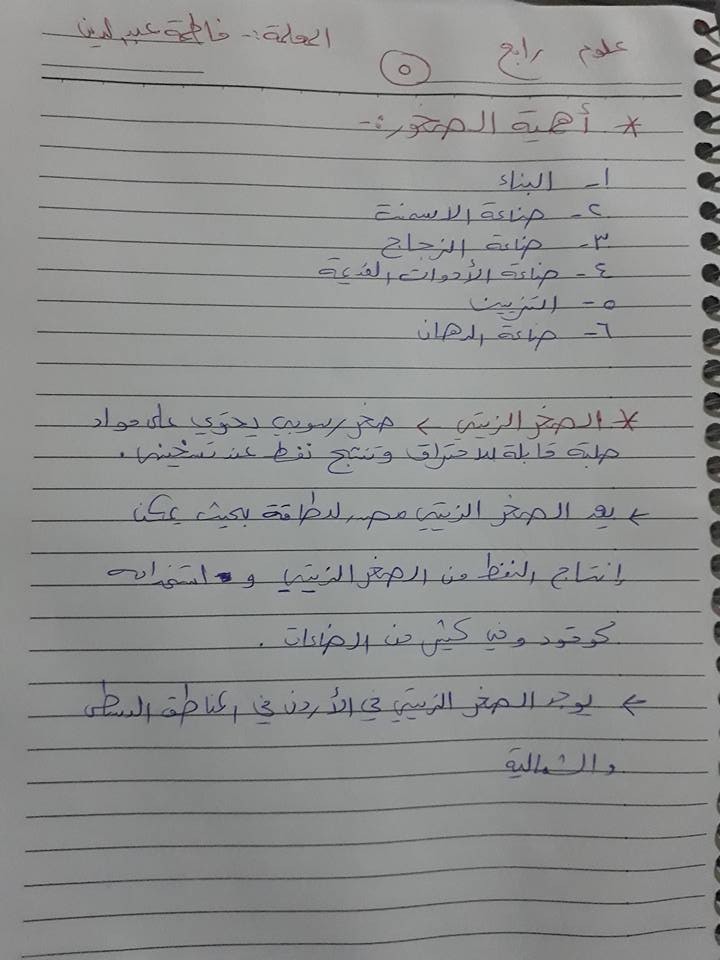 علوم رابع
٥
المعلمة :- فاطمة عبد الدين
* أهمية الصخور :-
١- البناء
٢- صناعة الاسمنت
٣- صناعة الزجاج
٤- صناعة الأدوات القديمة
٥- التزيين
٦- صناعة الدهان
* الصخر الزيتي ← صخر رسوبي يحتوي على مواد
صلبة قابلة للاحتراق وتنتج نفط عند تسخينها .
← يعد الصخر الزيتي مصدر للطاقة بحيث يمكن
إنتاج النفط من الصخر الزيتي و استخدامه
كوقود وفي كثير من الصناعات .
← يوجد الصخر الزيتي في الأردن في المناطق الوسطى
والشمالية